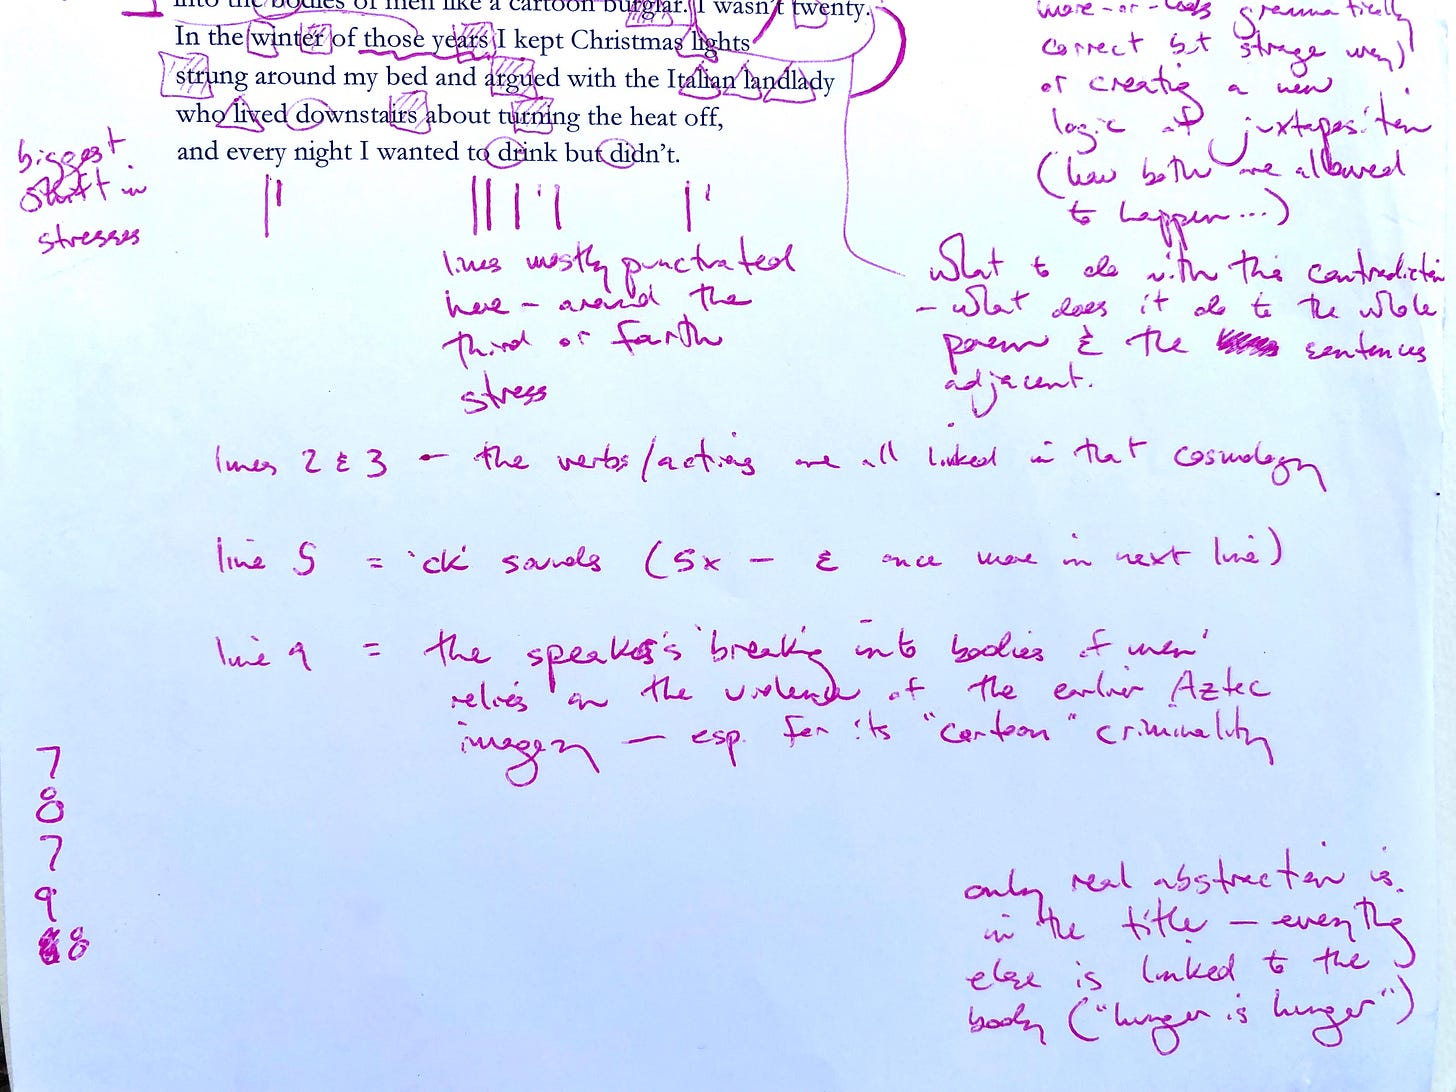 into the bodies of men like a cartoon burglar. I wasn't twenty.
In the winter of those years I kept Christmas lights
strung around my bed and argued with the Italian landlady
who lived downstairs about turning the heat off,
and every night I wanted to drink but didn't.
more-or-less grammatically
correct but strange way)
or creating a new
logic of juxtaposition
(how both are allowed
to happen...)
biggest
shift in
stresses
lines mostly punctuated
here - around the
third or fourth
stress
What to do with this contradiction
- what does it do to the whole
poem & the sentences
adjacent.
lines 2 & 3 - the verbs/actions are all linked in that cosmology
line 5 = 'ck' sounds (5x - & once more in next line)
line 9 = the speaker's 'breaking into bodies of men'
relies on the violence of the earlier Aztec
imagery - esp. for its "cartoon" criminality
7
8
7
9
8
only real abstraction is
in the title - everything
else is linked to the
body ("hunger is hunger")